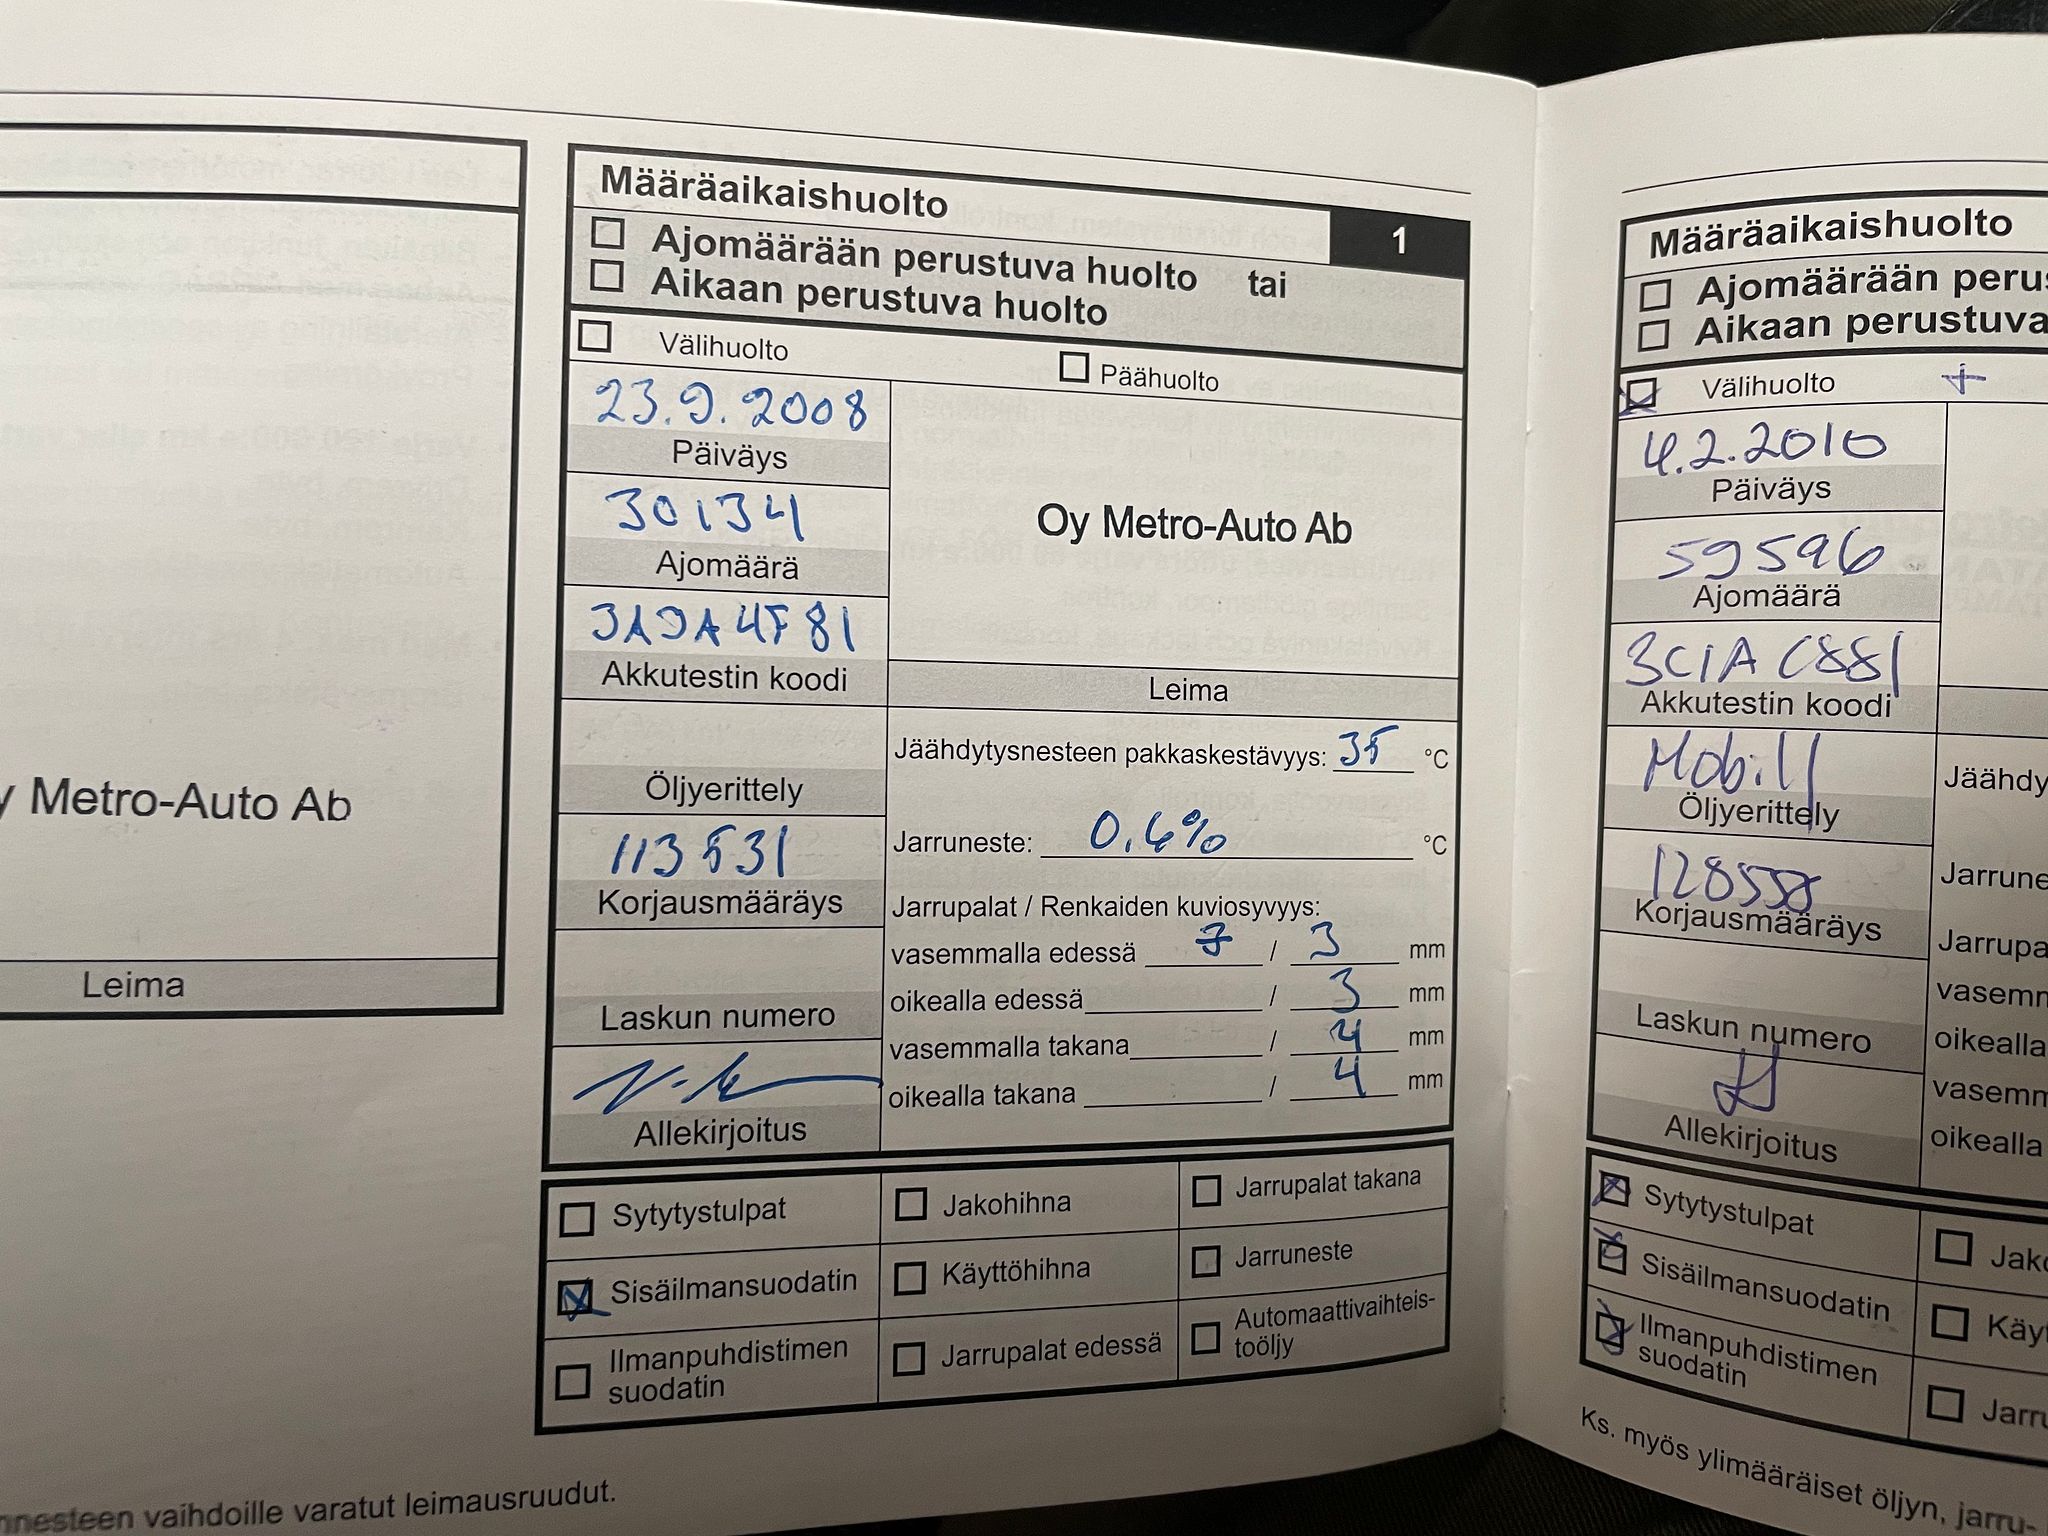 y Metro-Auto Ab
Leima
nnesteen vaihdoille varatut leimausruudut.
Määräaikaishuolto
1
Ajomäärään perustuva huolto tai
Aikaan perustuva huolto
Välihuolto
Päähuolto
23.9.2008
Päiväys
30134
Ajomäärä
3A9A4F81
Akkutestin koodi
Öljyerittely
113531
Korjausmääräys
Laskun numero
Allekirjoitus
Oy Metro-Auto Ab
Leima
Jäähdytysnesteen pakkaskestävyys: 35 °C
Jarruneste: 0.6% °C
Jarrupalat / Renkaiden kuviosyvyys:
vasemmalla edessä 7 / 3 mm
oikealla edessä / 3 mm
vasemmalla takana / 4 mm
oikealla takana / 4 mm
Sytytystulpat
Jakohihna
Jarrupalat takana
Sisäilmansuodatin
Käyttöhihna
Jarruneste
Ilmanpuhdistimen
suodatin
Jarrupalat edessä
Automaattivaihteis-
toöljy
Määräaikaishuolto
Ajomäärään perus
Aikaan perustuva
Välihuolto +
4.2.2010
Päiväys
59596
Ajomäärä
3C1AC881
Akkutestin koodi
Mobil1
Öljyerittely
128558
Korjausmääräys
Laskun numero
Allekirjoitus
Jäähdy
Jarrune
Jarrupa
vasemm
oikealla
vasemm
oikealla
Sytytystulpat
Jako
Sisäilmansuodatin
Käyt
Ilmanpuhdistimen
suodatin
Jarru
Ks. myös ylimääräiset öljyn, jarru-